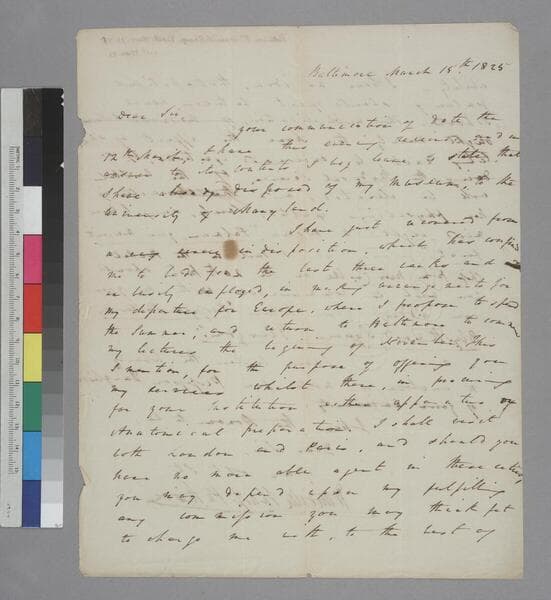 Baltimore March 15th 1825
Dear Sir
your communication of date the
12th I have this evening received and in
answer to its contents I beg leave to state that
I have already disposed of my Museum, to the
University of Maryland.
I have just recovered from
a indisposition, which has confined
me to bed for the last three weeks and
busily employed, in making arrangements for
my departure for Europe, where I propose to spend
the Summer, and return to Baltimore to
my lectures the beginning of November. This
I mention, for the purpose of offering you
my services whilst there, in procuring
for your Institution either apparatus or
Anatomical preparations. I shall visit
both London and Paris, and should you
have no more able agent in these cities
you may depend upon my fulfilling
any commission you may think fit
to charge me with, to the best of